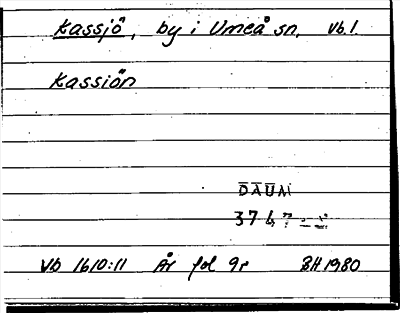 Kassjö, by i Umeå sn. Vb.1.
Kassiön
DAUM
3747
Vb 1610:11 År fol 9r BH 1980